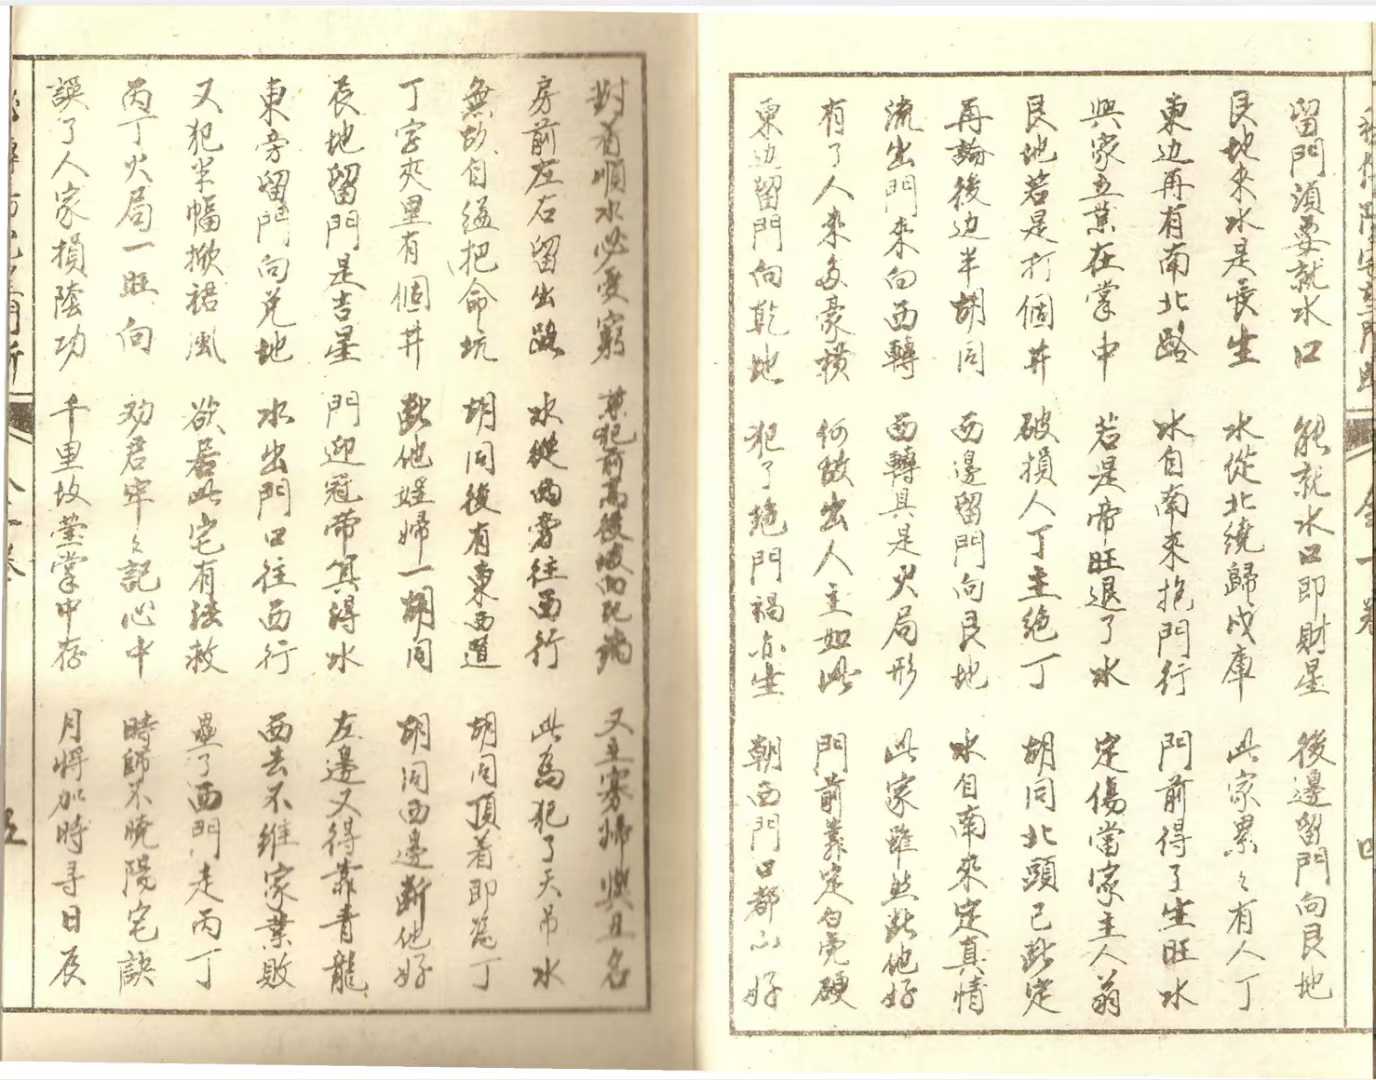 留門須要就水口 能就水口即財星 後邊留門向艮地
艮地來水是長生 水從北繞歸戌庫 此家累々有人丁
東边再有南北路 水自南來抱門行 門前得了生旺水
與家立業在掌中 若是帝旺退了水 定傷當家主人翁
艮地若是打個井 破損人丁主絶丁 胡同北頭已斷定
再論後边半胡同 西邊留門向艮地 水自南來定真情
流出門來向西轉 西轉具是火局形 此家雖然斷他好
有了人來多豪横 何故出人主如此 門前靠定白虎硬
東边留門向乾地 犯了絶門禍亦生 朝西門口都不好
對着順水必受窮 又主寡婦與丑名
房前左右留出路 水從两旁往西行 此為犯了天吊水
無故自縊把命坑 胡同後有東西道 胡同頂着即為丁
丁字夾里有個井 斷他婬婦一胡同 胡同西邊斷他好
辰地留門是吉星 門迎冠帶真得水 左邊又得靠青龍
東旁留門向兌地 水出門口往西行 西去不維家業敗
又犯半幅掀裙風 欲居此宅有法救 壘了西門走丙丁
丙丁火局一旺向 劝君牢々記心中 時師不曉陽宅訣
誤了人家損陰功 千里故塋掌中存 月將加時寻日辰